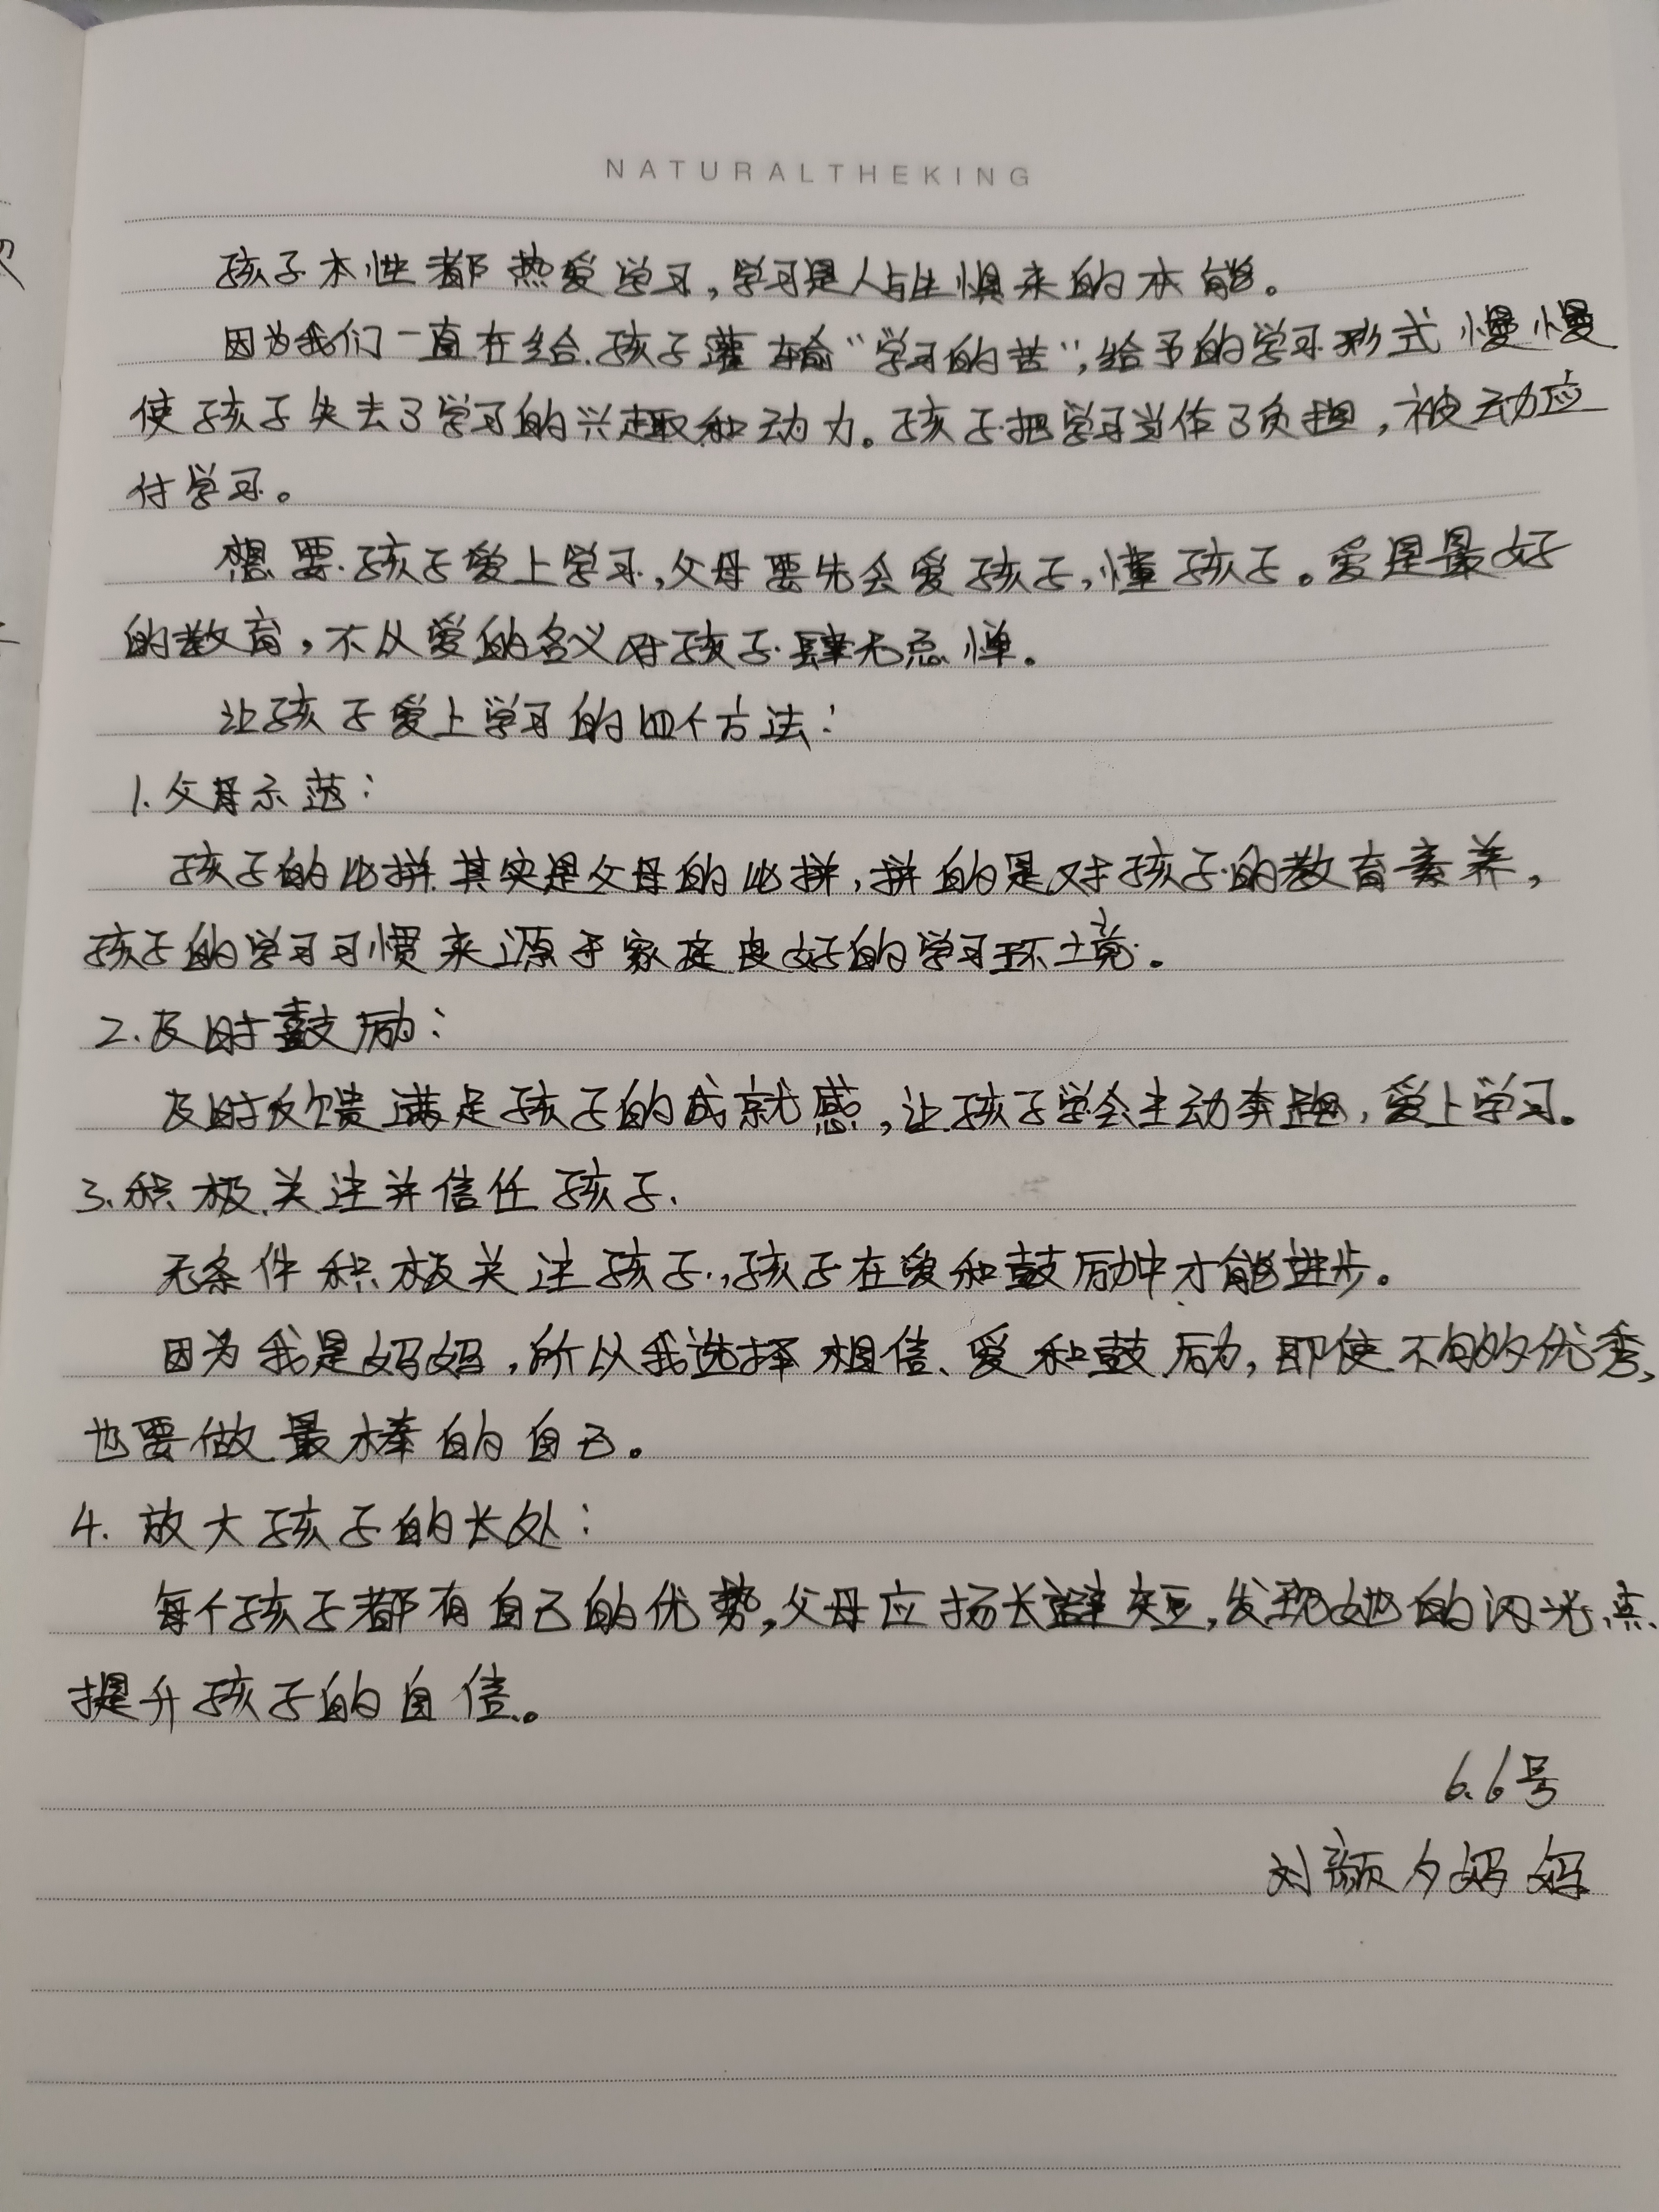 NATURALTHEKING
孩子本性都热爱学习，学习是人与生惧来的本能。
因为我们一直在给孩子灌输“学习的苦”，给予的学习形式慢慢
使孩子失去了学习的兴趣和动力。孩子把学习当作了负担，被动应
付学习。
想要孩子爱上学习，父母要先会爱孩子，懂孩子。爱是最好
的教育，不以爱的名义对孩子肆无忌惮。
让孩子爱上学习的四个方法：
1.父母示范：
孩子的比拼其实是父母的比拼，拼的是对孩子的教育素养，
孩子的学习习惯来源于家庭良好的学习环境。
2.及时鼓励：
及时反馈满足孩子的成就感，让孩子学会主动奔跑，爱上学习。
3.积极关注并信任孩子.
无条件积极关注孩子，孩子在爱和鼓励中才能进步。
因为我是妈妈，所以我选择相信、爱和鼓励，即使不够优秀，
也要做最棒的自己。
4.放大孩子的长处：
每个孩子都有自己的优势，父母应扬长避短，发现她的闪光点、
提升孩子的自信。
6.6号
刘颜夕妈妈